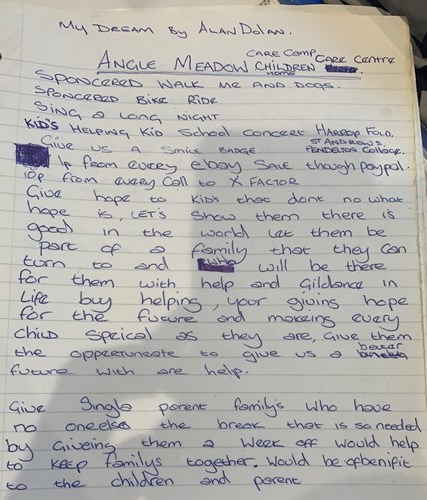 My Dream By Alan Dolan.
Care Comp Care Centre
Angle Meadow Children
Home
Sponcered Walk Me And Dogs.
Sponcered Bike Ride
Sing a Long Night
Kid's Helping Kid School Concert Harrop Fold,
St Andrew's
Give us a Smile Badge Pendelton Collage.
1p from every ebay Sale though paypal.
10p from every Call to X Factor
Give hope to Kids that dont no what
hope is, Let's Show them there is
good in the world let them be
part of a family that they can
turn to and will be there
for them with help and Gildance in
Life buy helping, your giving hope
for the future and makeing every
Child Speical as they are, Give them
the oppeertuneate to give us a better
future with are help.
Give Single parent family's who have
no oneelse the break that is so needed
by Giveing them a week off would help
to keep familys together. Would be of benifit
to the children and parent